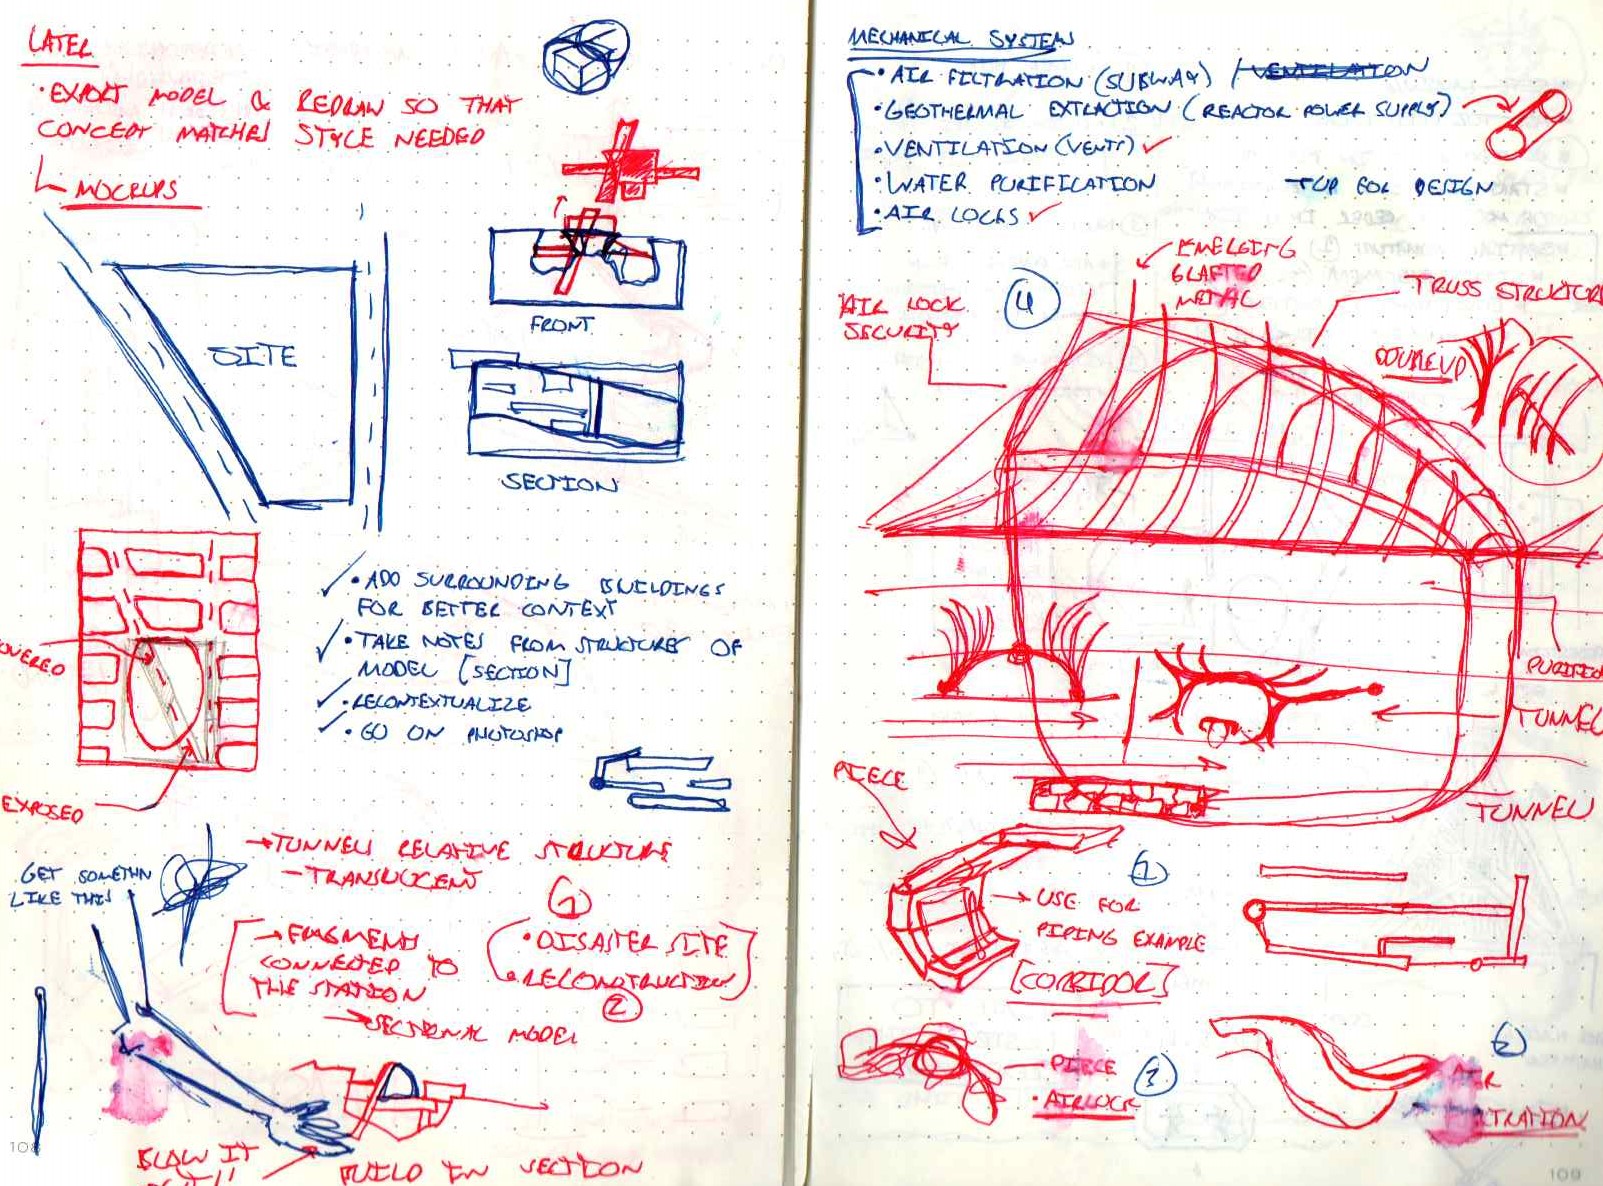 LATER
• EXPORT MODEL & REDRAW SO THAT
CONCEPT MATCHES STYLE NEEDED
MOCKUPS
SITE
FRONT
SECTION
• ADD SURROUNDING BUILDINGS
FOR BETTER CONTEXT
• TAKE NOTES FROM STRUCTURES OF
MODEL [SECTION]
• RECONTEXTUALIZE
• GO ON PHOTOSHOP
EXPOSED
GET SOMETHN
LIKE THIS
→ TUNNELS RELATIVE STRUCTURE
– TRANSLUCENT
1
→ FRAGMENTS
CONNECTED TO
THE STATION
• DISASTER SITE
• RECONSTRUCTION
2
→ SECTIONAL MODEL
BLOW IT
BUILD IN SECTION
108
MECHANICAL SYSTEM
• AIR FILTRATION (SUBWAY) / VENTILATION
• GEOTHERMAL EXTRACTION (REACTOR POWER SUPPLY)
• VENTILATION (VENTS)
• WATER PURIFICATION
• AIR LOCKS
FOR DESIGN
EMERGING
GRAFTED
METAL
TRUSS STRUCTURE
AIR LOCK
SECURITY
4
DOUBLE UP
TUNNEL
TUNNEL
PIECE
1
→ USE FOR
PIPING EXAMPLE
[CORRIDOR]
PIECE
• AIRLOCK
3
2
109